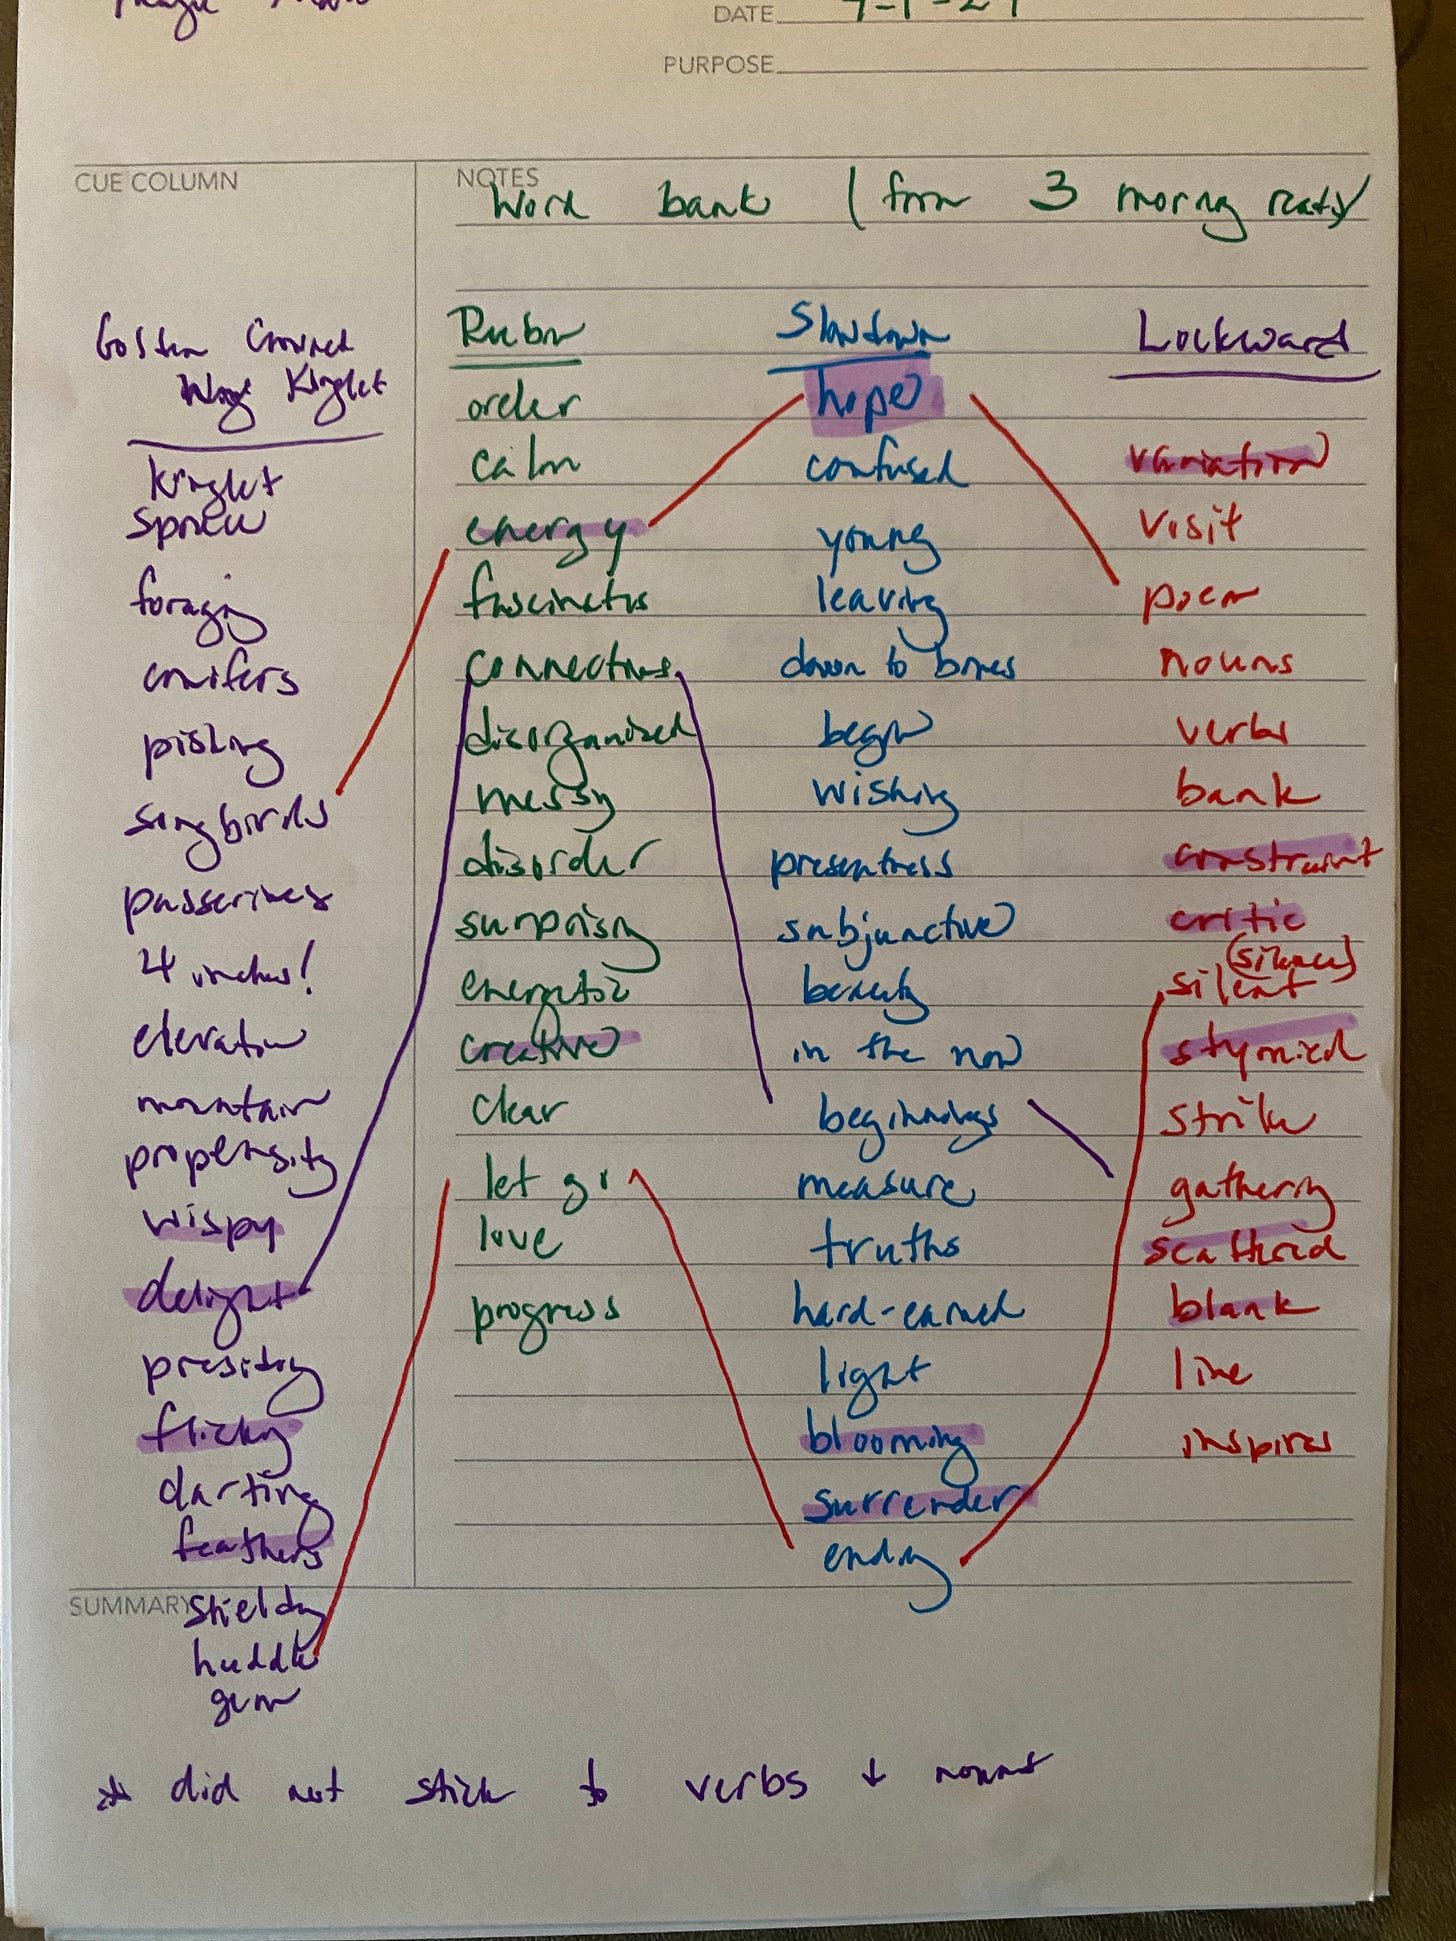 DATE 4-1-24
PURPOSE
CUE COLUMN
NOTES
Word bank (from 3 morng
Golden Crowned
Kinglet
kinglet
spruce
foraging
conifers
singbirds
passerines
4 inches!
elevation
mountain
propensity
wispy
delight
presiding
flicking
darting
feathers
Rubin
order
calm
energy
fascinates
connections
disorganized
messy
disorder
surprising
energetic
creative
clear
let go
love
progress
Slowdown
hope
confused
young
leaving
down to bones
begin
wishing
presentness
subjunctive
beauty
in the now
beginnings
measure
truths
hard-earned
light
blooming
surrender
ending
Lockward
variation
visit
poem
nouns
verbs
bank
constraint
critic
(silences)
silent
stymied
strike
gathering
scattered
blank
line
inspires
SUMMARY
shielding
huddle
* did not stick to verbs + nouns